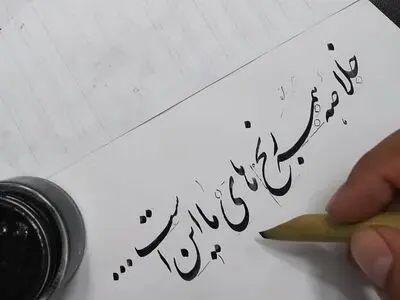 خلاصه همه رنج‌های ما این است...